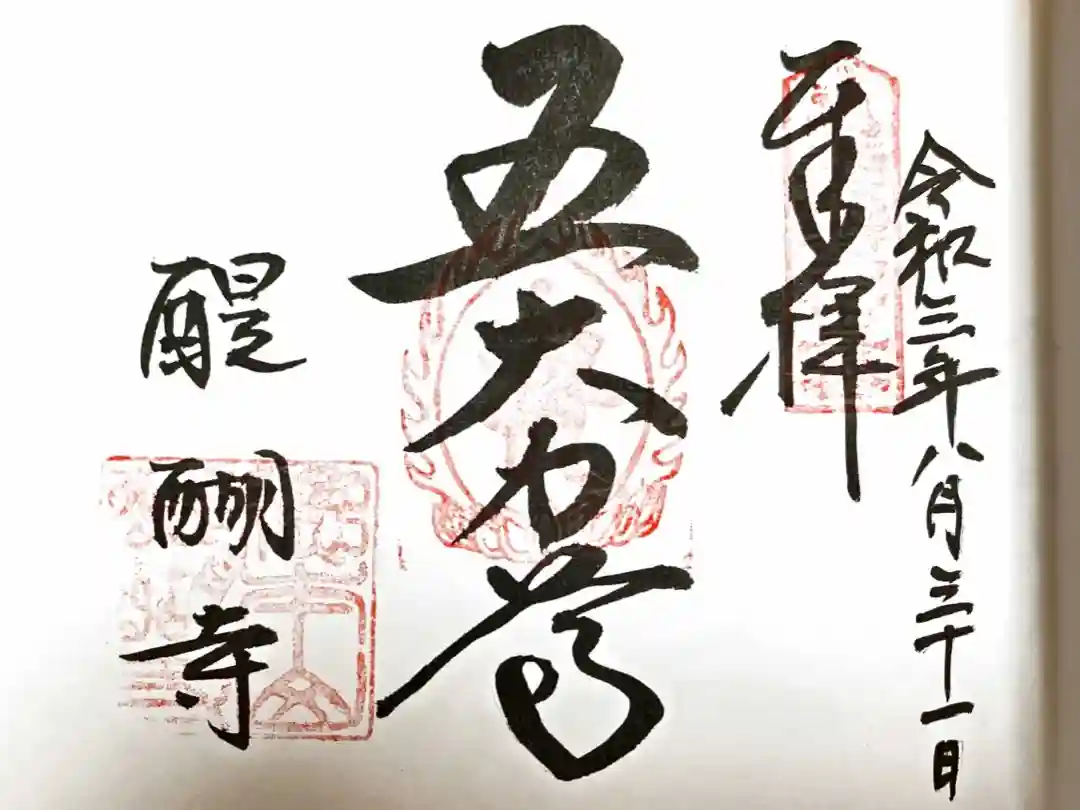 令和三年八月三十一日
奉拝
五大力尊
醍醐寺